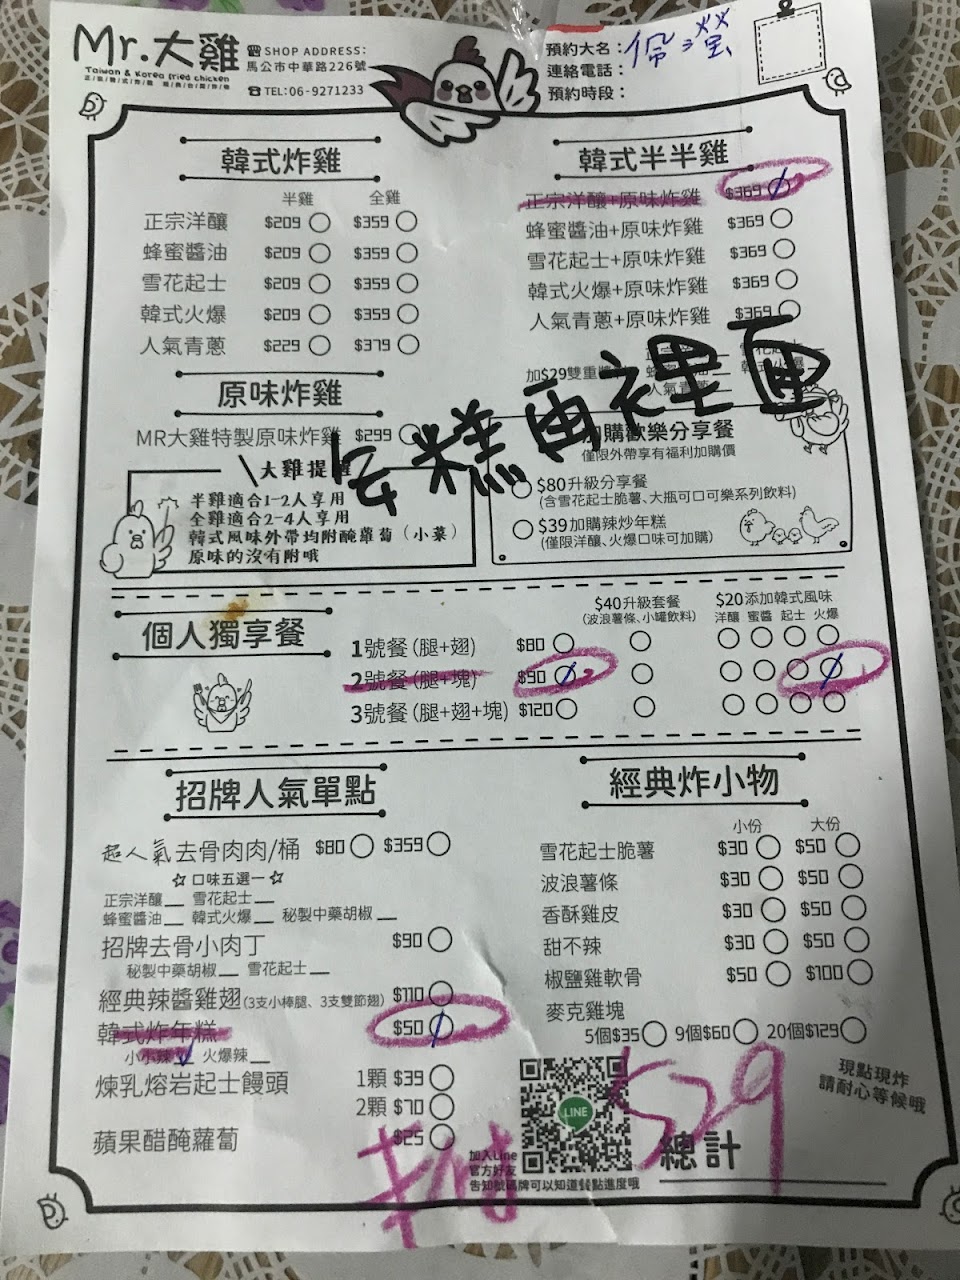 Mr.大雞
Taiwan & Korea fried chicken
☎SHOP ADDRESS:
馬公市中華路226號
☎TEL:06-9271233
預約大名：佩瀅
連絡電話：
預約時段：
韓式炸雞
半雞 全雞
正宗洋釀 $209 $359
蜂蜜醬油 $209 $359
雪花起士 $209 $359
韓式火爆 $209 $359
人氣青蔥 $229 $379
原味炸雞
MR大雞特製原味炸雞 $299
大雞提醒
半雞適合1-2人享用
全雞適合2-4人享用
韓式風味外帶均附醃蘿蔔（小菜）
原味的沒有附哦
韓式半半雞
正宗洋釀+原味炸雞 $369
蜂蜜醬油+原味炸雞 $369
雪花起士+原味炸雞 $369
韓式火爆+原味炸雞 $369
人氣青蔥+原味炸雞 $369
加$29雙重醬
人氣青蔥
年糕再裡面
加購歡樂分享餐
僅限外帶享有福利加購價
$80升級分享餐
(含雪花起士脆薯、大瓶可口可樂系列飲料)
$39加購辣炒年糕
(僅限洋釀、火爆口味可加購)
個人獨享餐
$40升級套餐
(波浪薯條、小罐飲料)
$20添加韓式風味
洋釀 蜜醬 起士 火爆
1號餐(腿+翅) $80
2號餐(腿+塊) $90
3號餐(腿+翅+塊) $120
招牌人氣單點
超人氣去骨肉肉/桶 $80 $359
☆口味五選一☆
正宗洋釀__ 雪花起士__
蜂蜜醬油__ 韓式火爆__ 秘製中藥胡椒__
招牌去骨小肉丁 $90
秘製中藥胡椒__ 雪花起士__
經典辣醬雞翅(3支小棒腿、3支雙節翅) $110
韓式炸年糕 $50
小小辣 火爆辣__
煉乳熔岩起士饅頭 1顆 $39
2顆 $70
蘋果醋醃蘿蔔 $25
經典炸小物
小份 大份
雪花起士脆薯 $30 $50
波浪薯條 $30 $50
香酥雞皮 $30 $50
甜不辣 $30 $50
椒鹽雞軟骨 $50 $100
麥克雞塊
5個$35 9個$60 20個$129
現點現炸
請耐心等候哦
LINE
加入Line
官方好友
告知號碼牌可以知道餐點進度哦
總計
529